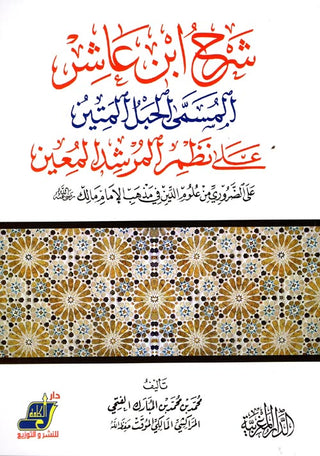 شرح ابن عاشر
المسمى الحبل المتين
على نظم المرشد المعين
على الضروري من علوم الدين في مذهب الإمام مالك
تأليف
محمد بن محمد بن المبارك الفتحي
المراكشي المالكي الموقت حفظه الله
الدار المغربية
دار
الكلمة
للنشر و التوزيع